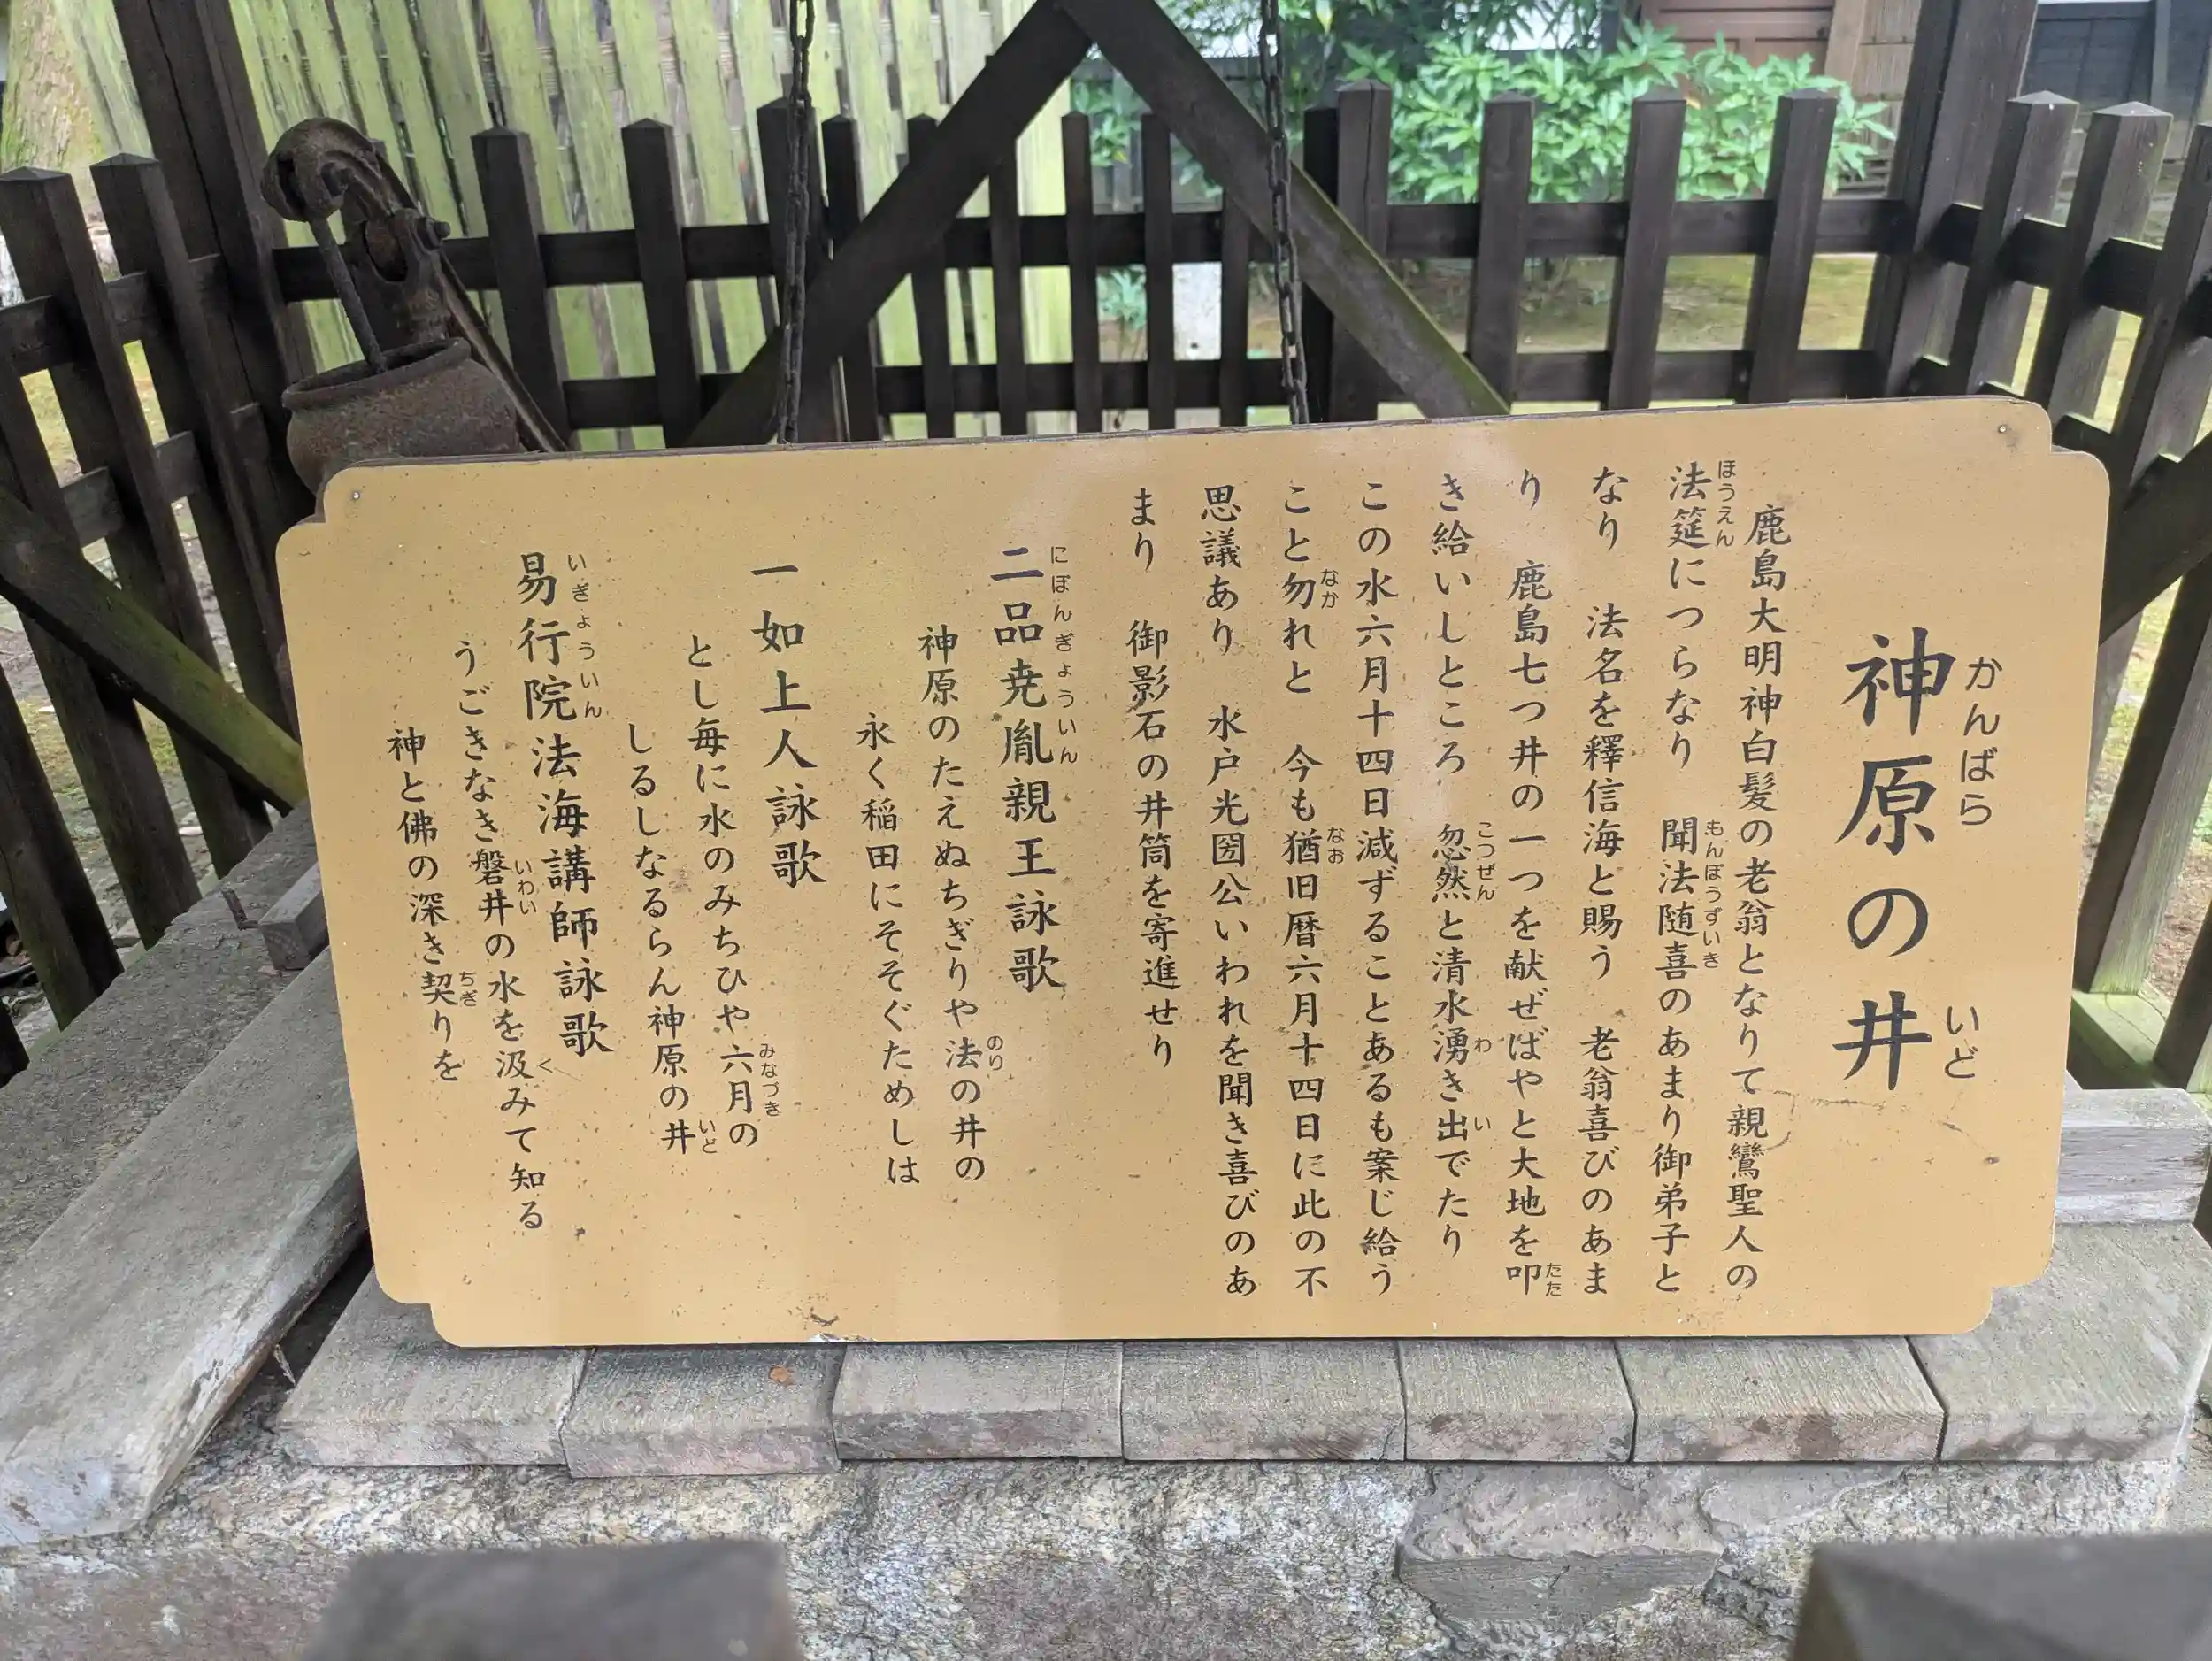 神原の井
かんばら いど
鹿島大明神白髪の老翁となりて親鸞聖人の
法筵につらなり 聞法随喜のあまり御弟子と
ほうえん もんぽうずいき
なり 法名を釋信海と賜う 老翁喜びのあま
り 鹿島七つ井の一つを献ぜばやと大地を叩
たた
き給いしところ 忽然と清水湧き出でたり
こつぜん わ い
この水六月十四日減ずることあるも案じ給う
こと勿れと 今も猶旧暦六月十四日に此の不
なか なお
思議あり 水戸光圀公いわれを聞き喜びのあ
まり 御影石の井筒を寄進せり
二品尭胤親王詠歌
にほんぎょういん
神原のたえぬちぎりや法の井の
のり
永く稲田にそそぐためしは
一如上人詠歌
とし毎に水のみちひや六月の
みなづき
しるしなるらん神原の井
いど
易行院法海講師詠歌
いぎょういん
うごきなき磐井の水を汲みて知る
いわい く
神と佛の深き契りを
ちぎ